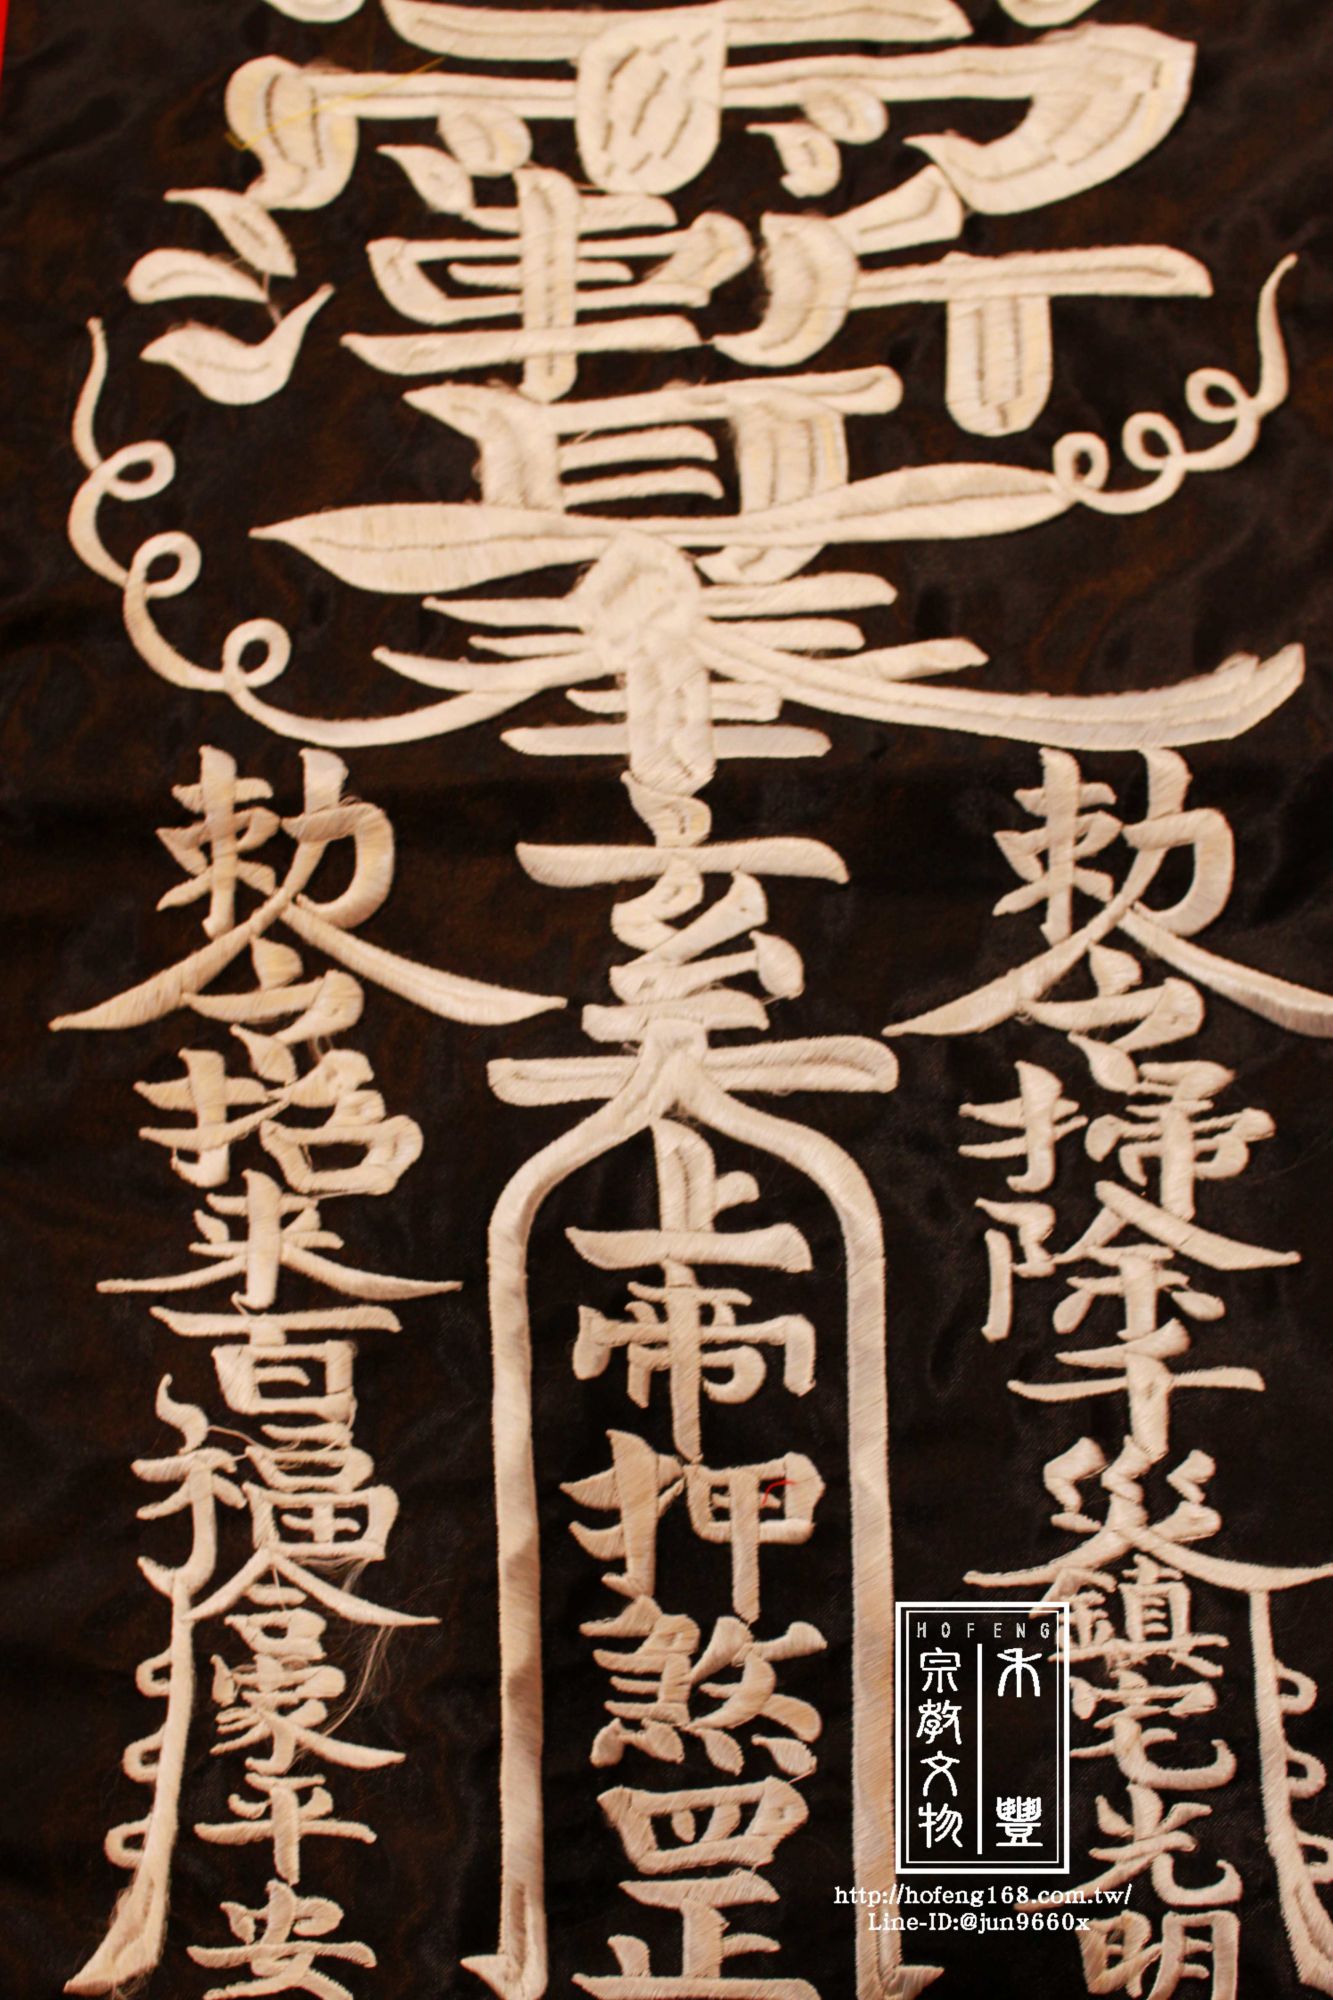 奉
玄天
上帝押煞四正
勅令掃除千災鎮宅光明
勅令招來百福合家平安
HOFENG
禾豐
宗教文物
http://hofeng168.com.tw/
Line-ID:@jun9660x